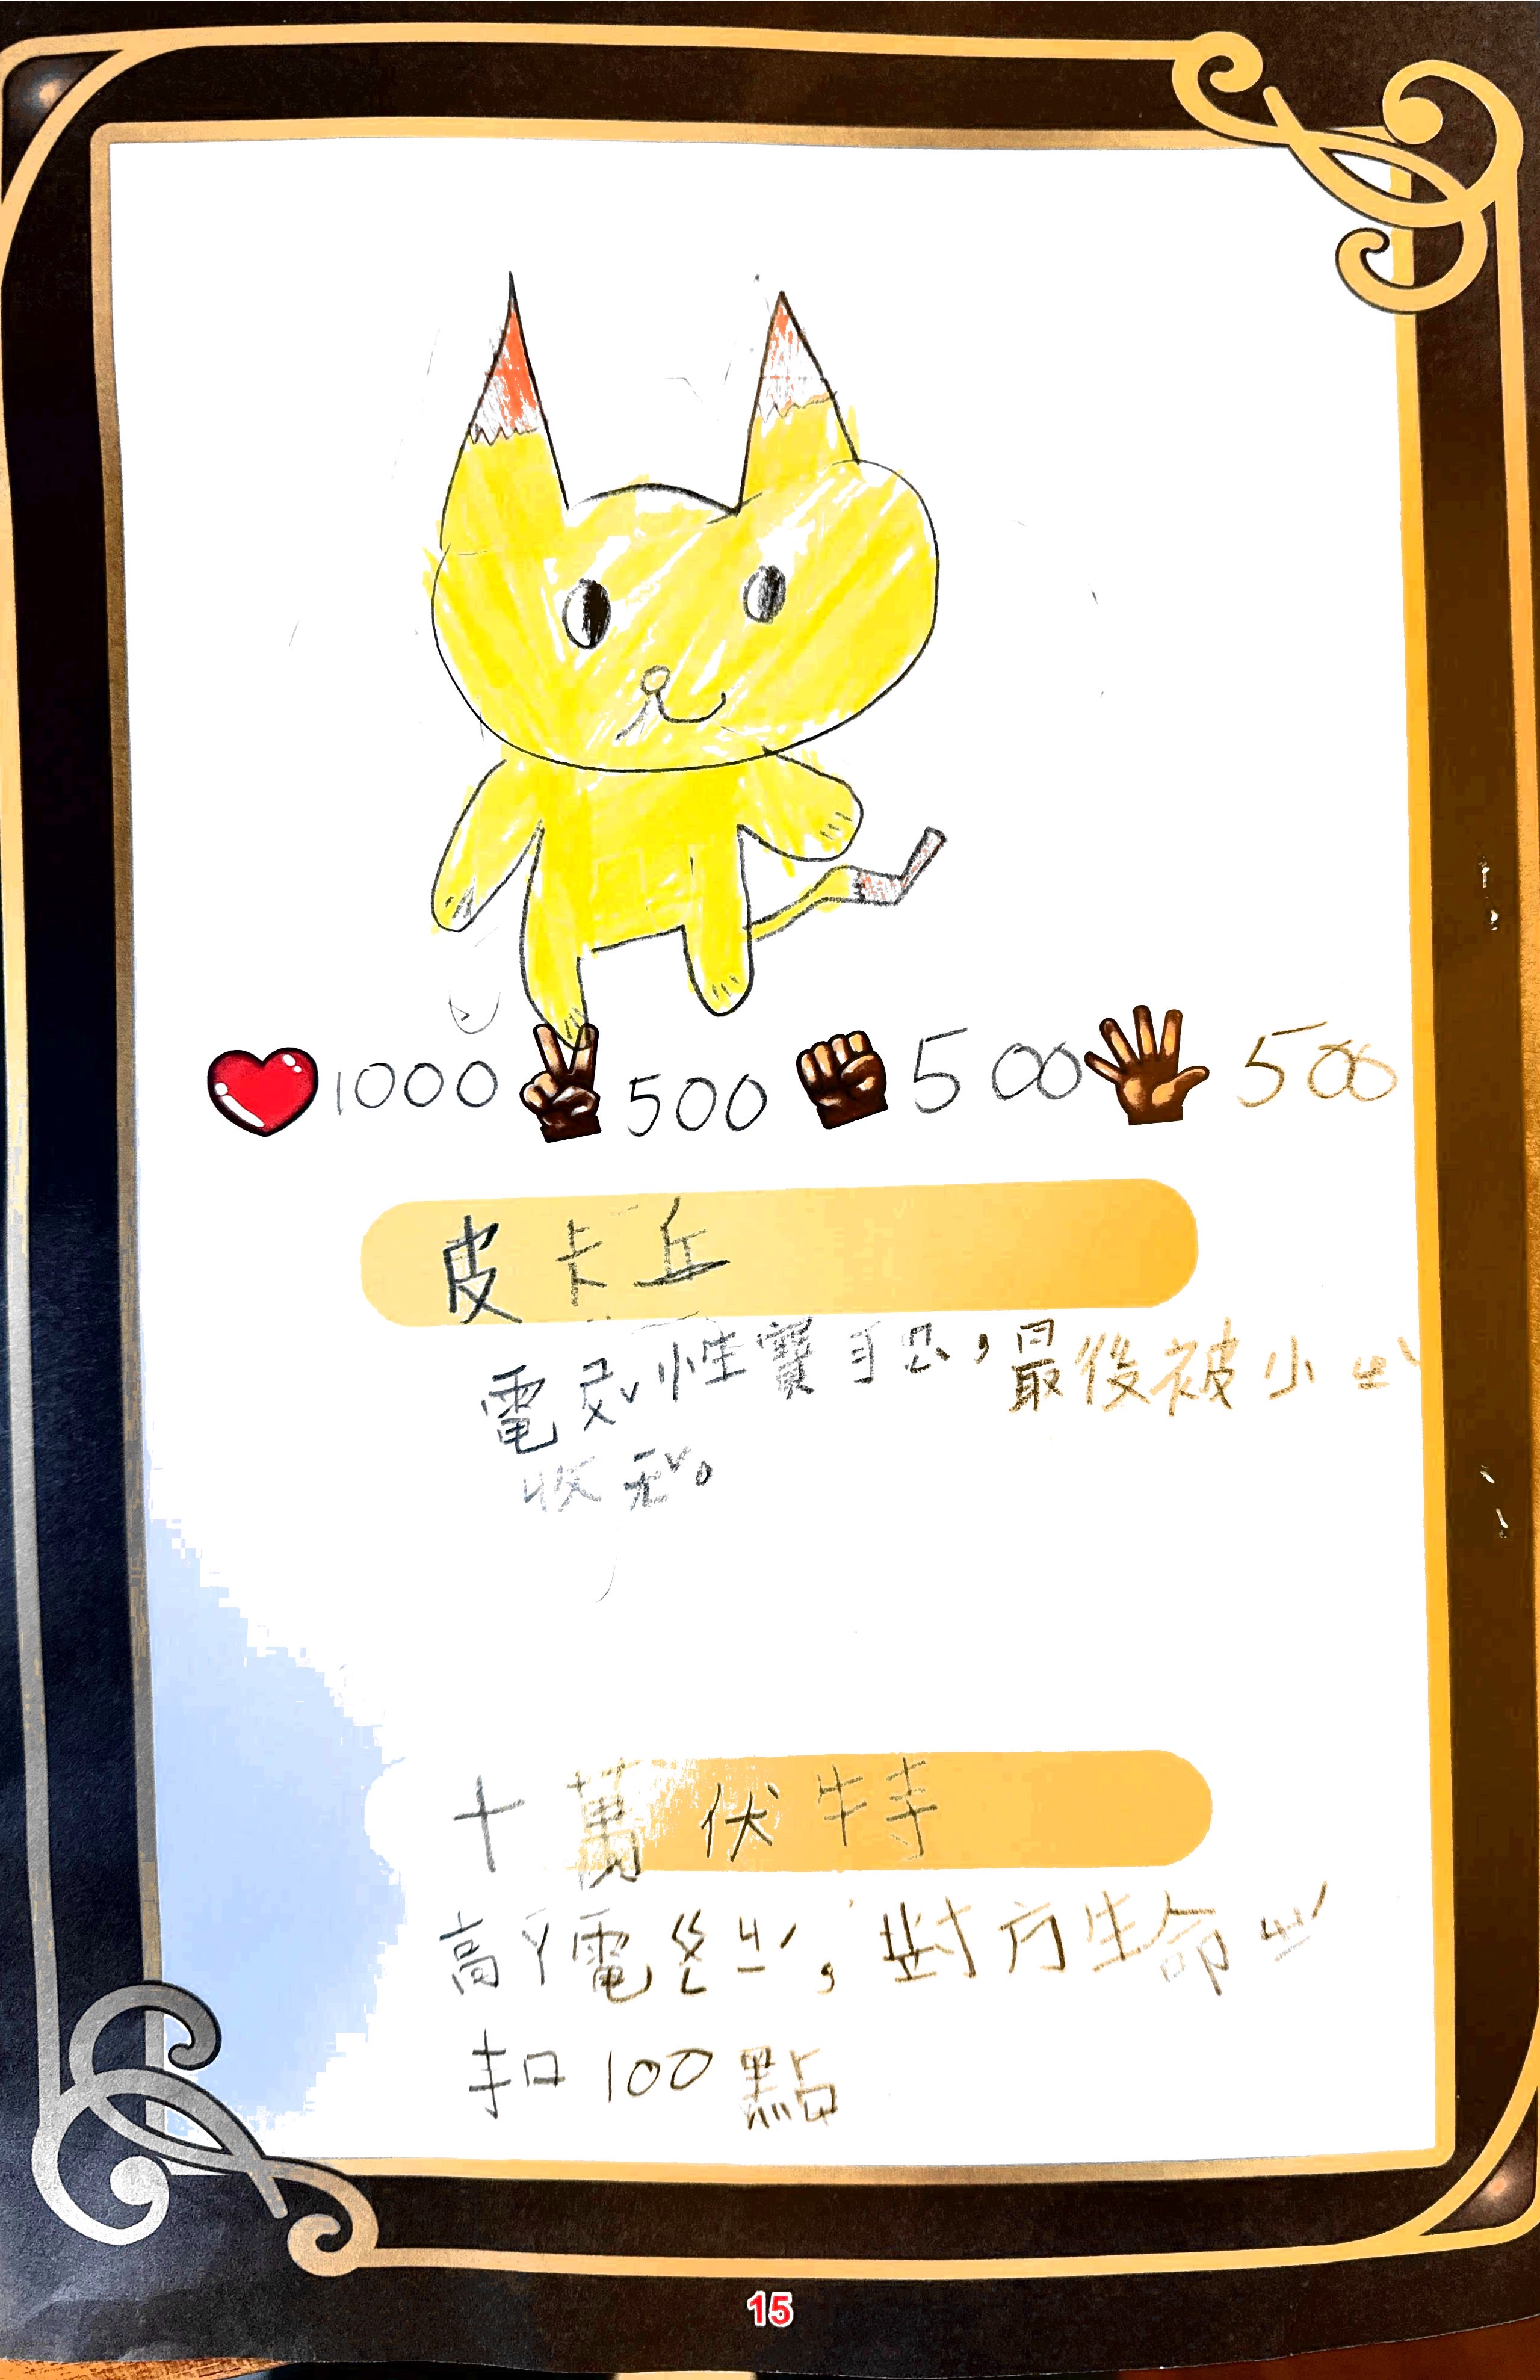 1000 500 500 500
皮卡丘
電ㄕㄨˇ性寶可ㄇㄥˋ,最後被小ㄓˋ
收ㄈㄨˊ。
十萬伏特
高ㄧㄚ電ㄐㄧˊ,對方生命ㄓˊ
扣100點
15